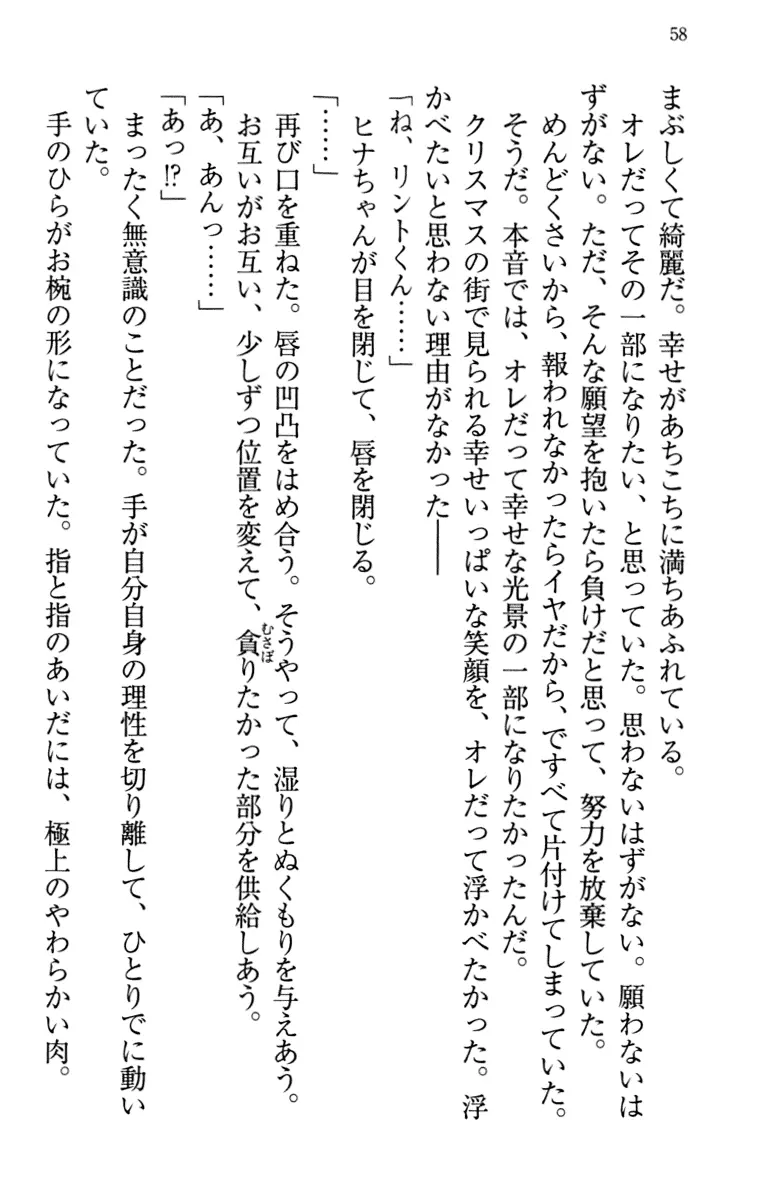 58
まぶしくて綺麗だ。幸せがあちこちに満ちあふれている。
オレだってその一部になりたい、と思っていた。思わないはずがない。願わないは
ずがない。ただ、そんな願望を抱いたら負けだと思って、努力を放棄していた。
めんどくさいから、報われなかったらイヤだから、ですべて片付けてしまっていた。
そうだ。本音では、オレだって幸せな光景の一部になりたかったんだ。
クリスマスの街で見られる幸せいっぱいな笑顔を、オレだって浮かべたかった。浮
かべたいと思わない理由がなかった――
「ね、リントくん……」
ヒナちゃんが目を閉じて、唇を閉じる。
「……」
再び口を重ねた。唇の凹凸をはめ合う。そうやって、湿りとぬくもりを与えあう。
お互いがお互い、少しずつ位置を変えて、貪りたかった部分を供給しあう。
むさぼ
「あ、あんっ……」
「あっ!?」
まったく無意識のことだった。手が自分自身の理性を切り離して、ひとりでに動い
ていた。
手のひらがお椀の形になっていた。指と指のあいだには、極上のやわらかい肉。